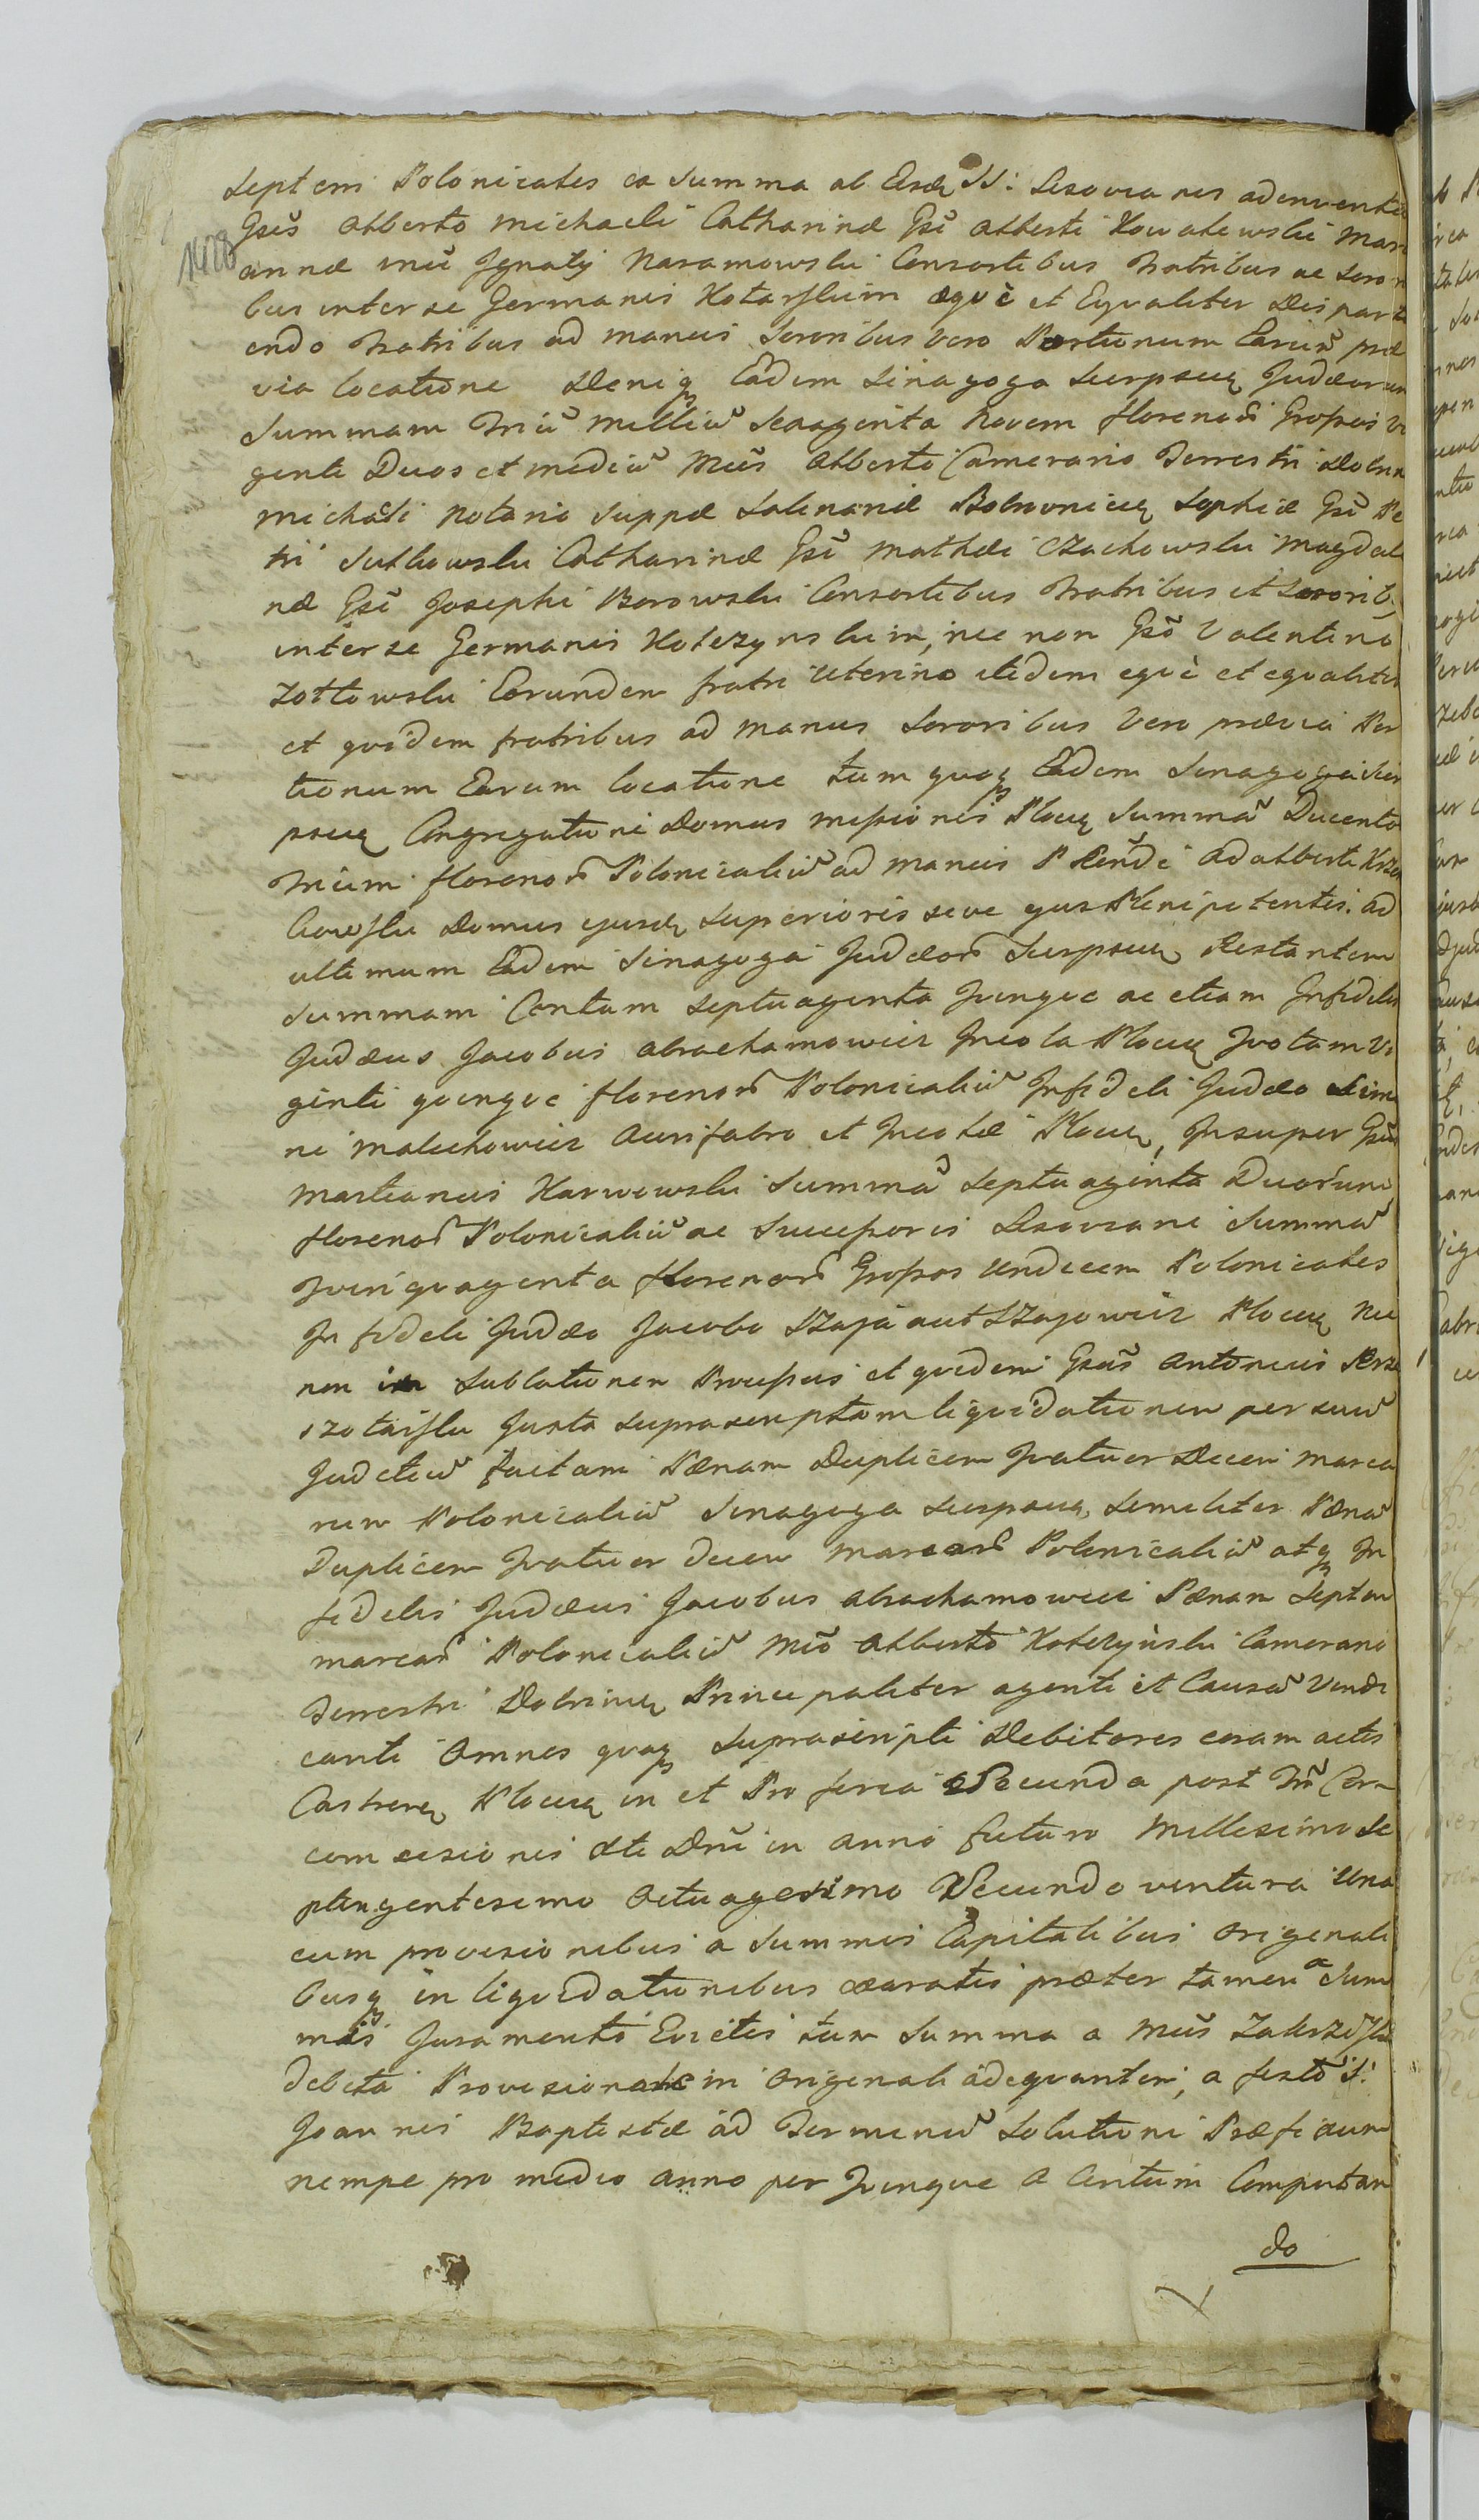 Septem Polonicales ea Summa ab Eisdq SS: Lisovianis adinventa
Gsis Alberto Michaeli Catharinæ Gsi Alberti Kowalewski Mari
1408
annæ mci Ignatij Naramowski Consortibus Fratribus ac Soror
bus inter se Germanis Kotarskim æquè et Equaliter Disparti
endo Fratribus ad manus Sororibus Vero Portionum Earum præ
via locatione Deniq Eadem Sinagoga Sierpscen Judæorum
Summam Triũ Milliũ Sexaginta Novem florenor Grossos Vi
ginti Duos et mediũ Mcis Alberto Camerario Terrestri Dobrin
Michaeli Notario Suppæ Salinariæ Bobrownicen Sophiæ Gsi Pe
tri Sutkowski Catharinæ Gsi Mathæi Czachowski Magdale
næ Gsi Josephi Borowski Consortibus Fratribus et Sororib
inter se Germanis Kotczynskim, nec non Gso Valentino
Zottowski Eorundem fratri Uterino itidem eqvè et eqvaliter
et qvidem fratribus ad manus Sororibus Vero prævia Por
tionum Earum locatione tum quoq Eadem Sinagoga Sier
pscen Congregationi Domus Missionis Plocen Summã Ducento
rum florenor Polonicaliũ ad manus P Rendi Adalberti
Domus ejusdq Superioris seve ejus Plenipotentis. Ad
ultimum Eadem Sinagoga Judæor Sierpscen Restantem
Summam Centum Septuaginta Qvinqve ac etiam Infidelis
Judæus Jacobus Abrahamowicz Incola Plocen Qvotam Vi
ginti qvinqve florenor Polonicaliũ Infideli Judæo Sim
ni Maluchowicz Aurifabro et Incolæ Plocen, Insuper Gsus
Martianus Karwowski Summã Septuaginta Duorum
florenor Polonicaliũ ac Successoris Lisoviani Summã
Qvinqvaginta florenor Grossos Undecim Polonicales
Infideli Judæo Jacobo Szaja aut Szajowicz Plocen Nec
non in Sublationem Processus et qvidem Gsus Antonius
Juxta Suprascriptam liqvidationem per suũ
Judiciũ factam Pænam Duplicem Qvatuor Decem Marca
rum Polonicaliũ Sinagoga Sierpscen Similiter Pænã
Duplicem Qvatuor decem Marcar Polonicaliũ atq In
fidelis Judæus Jacobus Abrahamowicz Pænam Septem
marcar Polonicaliũ Mco Alberto Kotczynski Camerario
Terrestri Dobrinen Principaliter agenti et Causã Vendi
canti Omnes qvoq Suprascripti Debitores coram actis
Castren Plocen in et Pro feria Secunda post Fm Cir
cumcisionis Xti Dni in anno futuro Millesimo Se
ptingentesimo Octuagesimo Secundo ventura Una
cum provisionibus a Summis Capitalibus Originali
busq in liqvidationibus exaratis præter tamen a Sum
mas Juramento Evictis tum Summa a Mcis
debita Provisionale in Originali adeqvantem, a festo S:
Joannis Baptistæ ad Terminũ Solutioni Præfixum
nempe pro medio anno per Qvinqve a Centum Computan
do